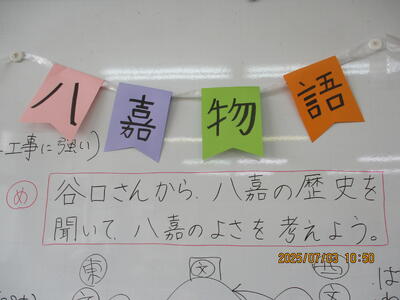 八嘉物語
工事に強い)
め
谷口さんから、八嘉の歴史を
聞いて、八嘉のよさを考えよう。
2025/07/03 10:50
東
文
西
は